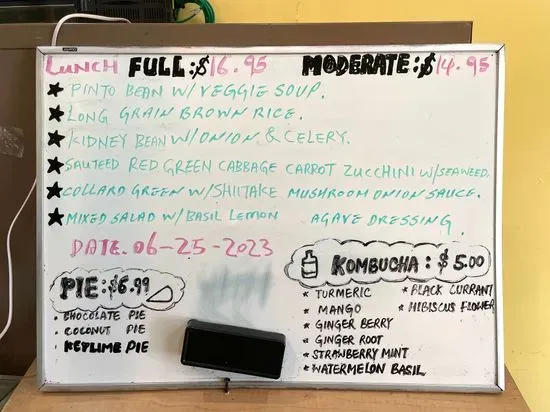 LUNCH FULL:$16.95 MODERATE:$14.95
★ PINTO BEAN W/VEGGIE SOUP.
★ LONG GRAIN BROWN RICE.
★ KIDNEY BEAN W/ONION & CELERY.
★ SAUTEED RED GREEN CABBAGE CARROT ZUCCHINI W/SEAWEED.
★ COLLARD GREEN W/SHIITAKE MUSHROOM ONION SAUCE.
★ MIXED SALAD W/BASIL LEMON AGAVE DRESSING.
DATE. 06-25-2023
PIE:$6.99
• CHOCOLATE PIE
• COCONUT PIE
• KEYLIME PIE
KOMBUCHA: $5.00
* TURMERIC * BLACK CURRANT
* MANGO * HIBISCUS FLOWER
* GINGER BERRY
* GINGER ROOT
* STRAWBERRY MINT
* WATERMELON BASIL